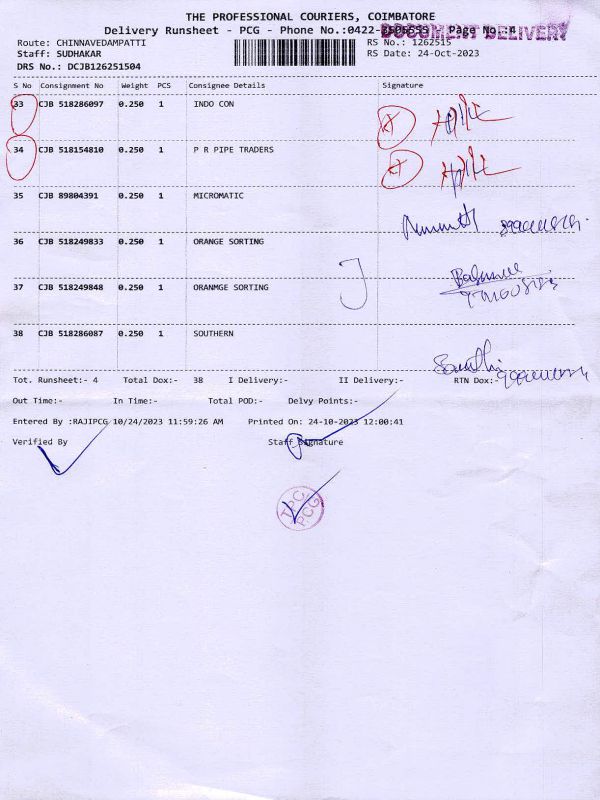 THE PROFESSIONAL COURIERS, COIMBATORE
Delivery Runsheet - PCG - Phone No.:0422- Page No.:4
DOCUMENT DELIVERY
Route: CHINNAVEDAMPATTI RS No.: 1262515
Staff: SUDHAKAR RS Date: 24-Oct-2023
DRS No.: DCJB126251504
S No Consignment No Weight PCS Consignee Details Signature
33 CJB 518286097 0.250 1 INDO CON
34 CJB 518154810 0.250 1 P R PIPE TRADERS
35 CJB 89804391 0.250 1 MICROMATIC
36 CJB 518249833 0.250 1 ORANGE SORTING
37 CJB 518249848 0.250 1 ORANMGE SORTING
38 CJB 518286087 0.250 1 SOUTHERN
Tot. Runsheet:- 4 Total Dox:- 38 I Delivery:- II Delivery:- RTN Dox:-
Out Time:- In Time:- Total POD:- Delvy Points:-
Entered By :RAJIPCG 10/24/2023 11:59:26 AM Printed On: 24-10-2023 12:00:41
Verified By Staff Signature
TPC
PCG